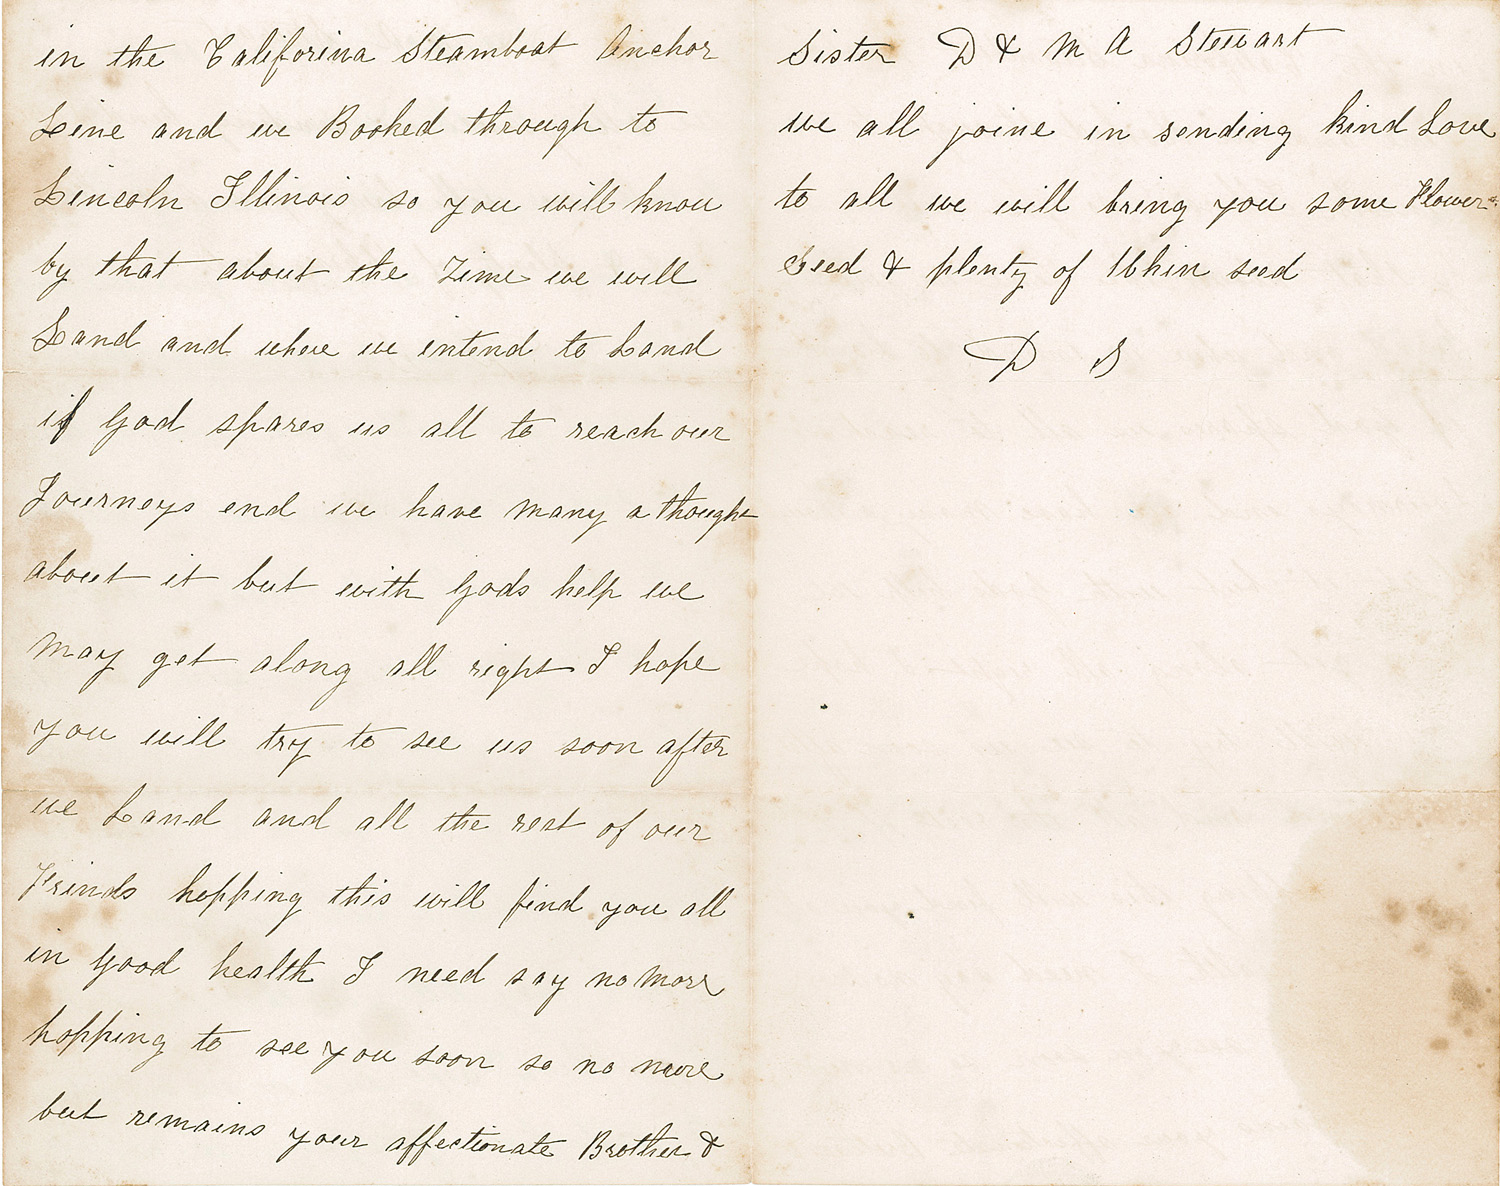 in the Califorina Steamboat Anchor
Line and we Booked through to
Lincoln Illinois so you will know
by that about the Time we will
Land and where we intend to Land
if God spares us all to reach our
Journeys end we have many a thought
about it but with Gods help we
May get along all right I hope
you will try to see us soon after
we Land and all the rest of our
Frinds hopping this will find you all
in good health I need say no More
hopping to see you soon so no more
but remains your affectionate Brother &
Sister D & M A Stewart
we all joine in sending kind Love
to all we will bring you some Flower
Seed & plenty of Whin seed
D S